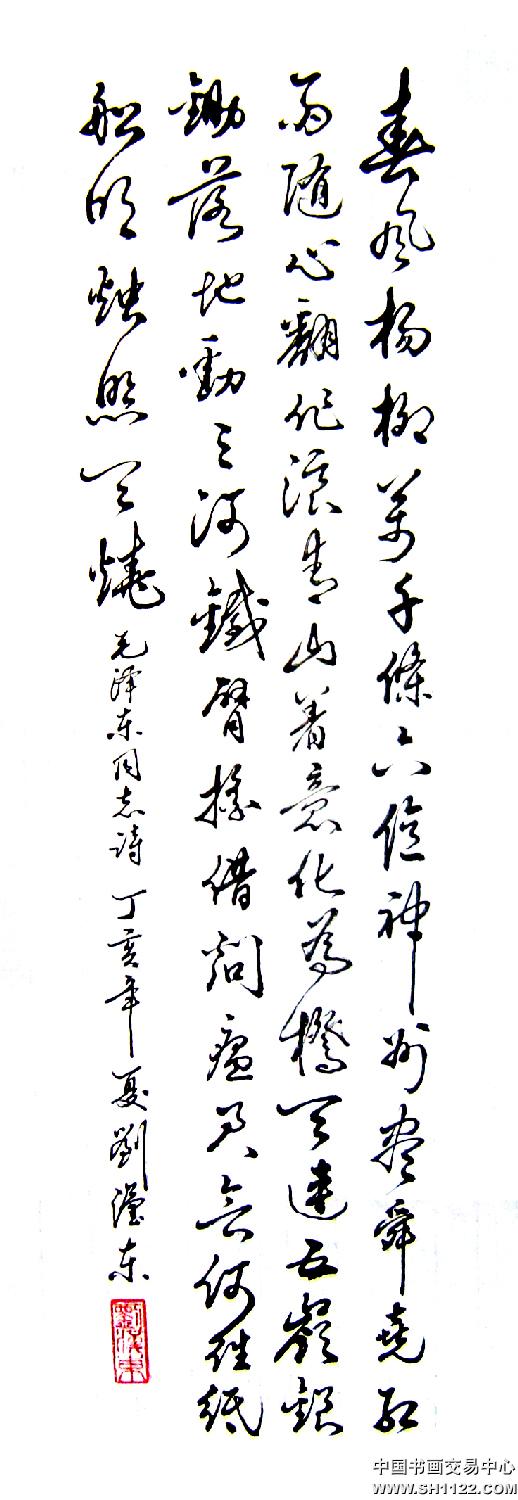 春風楊柳萬千條六億神州盡舜堯紅
雨随心翻作浪青山着意化為橋天連五嶺銀
鋤落地動三河鐵臂摇借問瘟君欲何往紙
船明燭照天燒
毛泽东同志诗 丁亥年夏劉東
中国书画交易中心
www.SH1122.COM